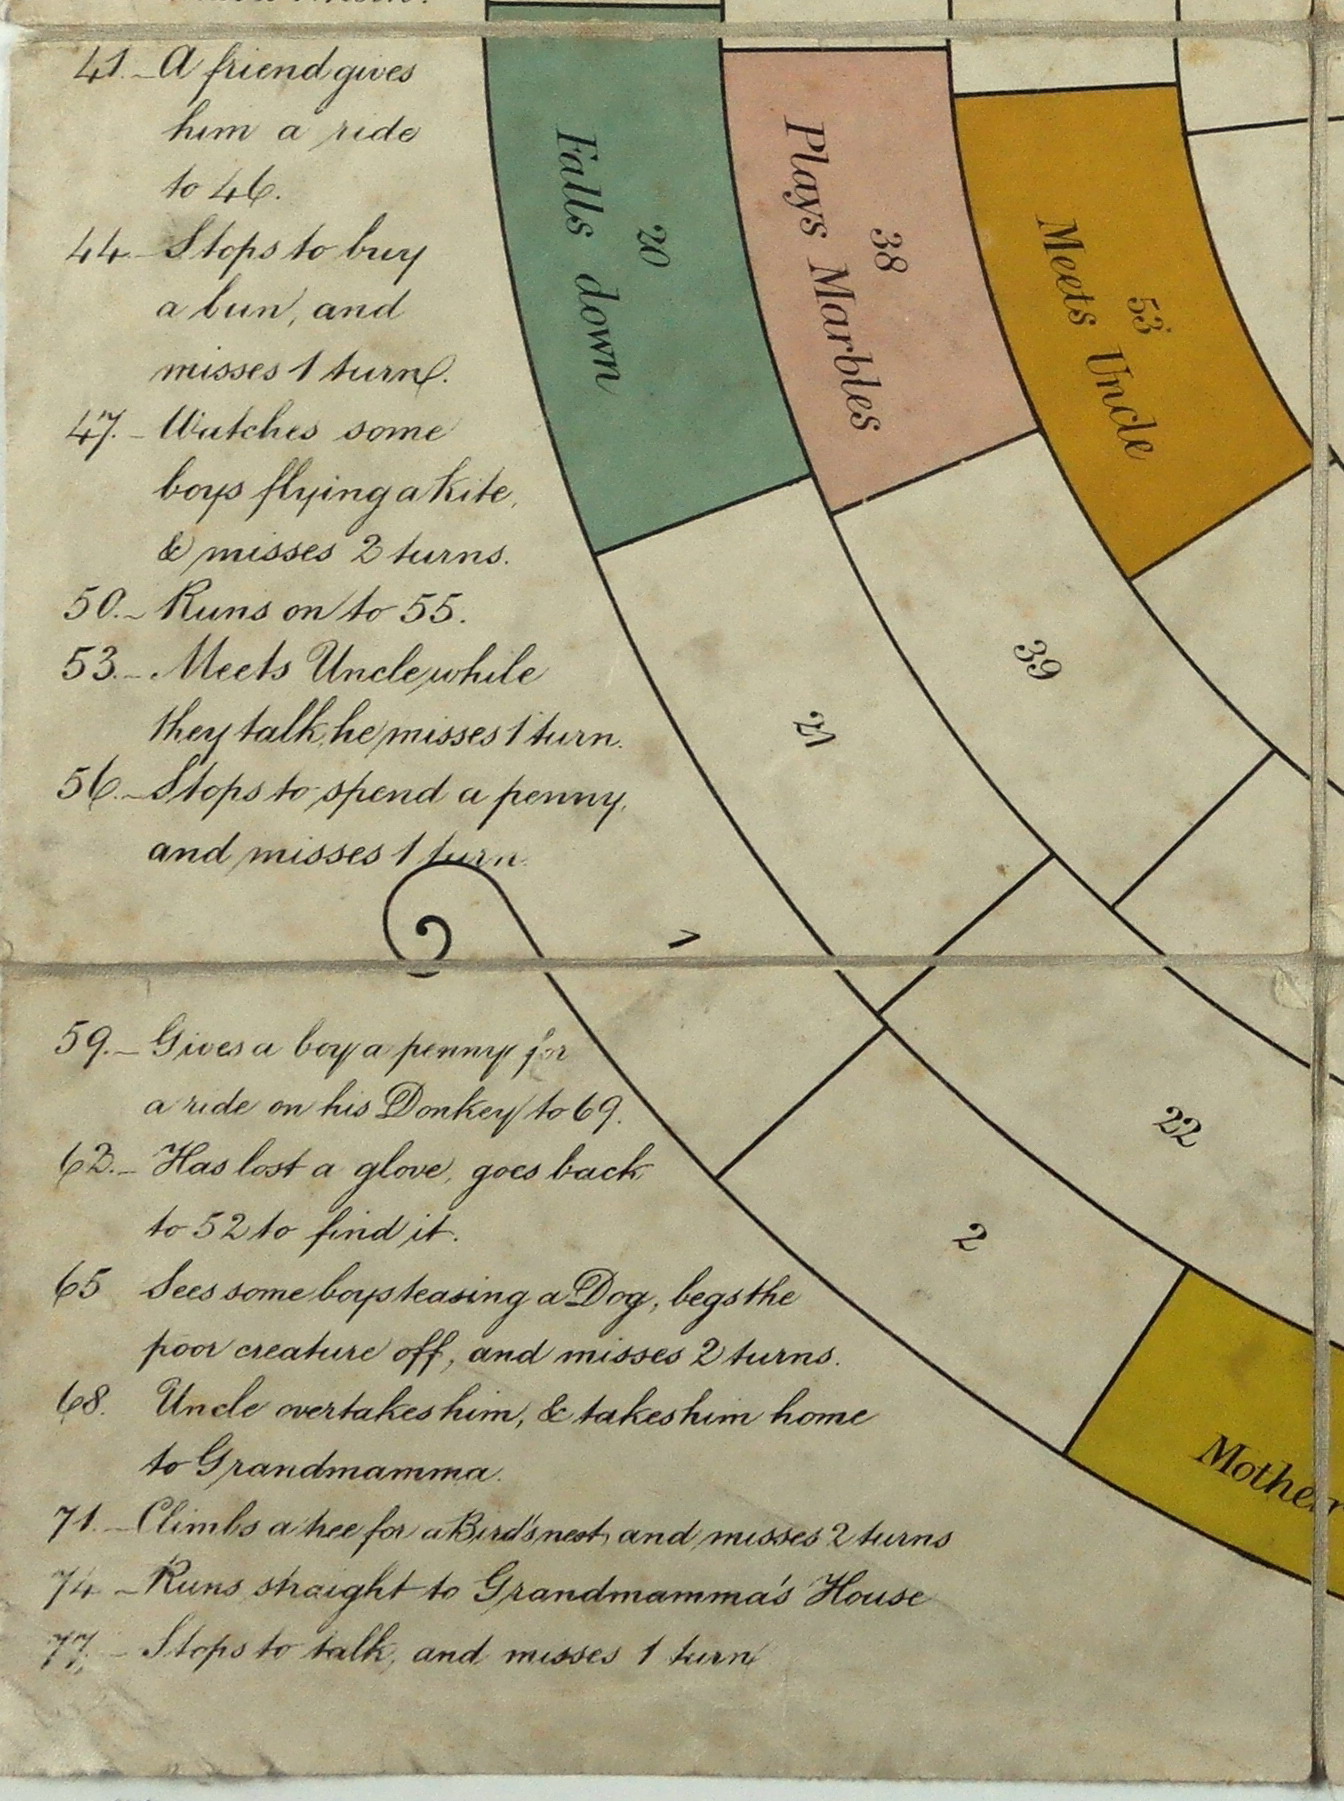 41. A friend gives
him a ride
to 46.
44 Stops to buy
a bun, and
misses 1 turn.
47. Watches some
boys flying a kite,
& misses 2 turns.
50. Runs on to 55.
53. Meets Uncle, while
they talk, he misses 1 turn.
56. Stops to spend a penny,
and misses 1 turn.
59. Gives a boy a penny for
a ride on his Donkey to 69.
62. Has lost a glove, goes back
to 52 to find it.
65 Sees some boys teasing a Dog, begs the
poor creature off, and misses 2 turns.
68. Uncle overtakes him, & takes him home
to Grandmamma.
71. Climbs a tree for a Bird's nest, and misses 2 turns
74 Runs straight to Grandmamma's House
77. Stops to talk, and misses 1 turn
20
Falls down
38
Plays Marbles
53
Meets Uncle
39
21
1
22
2
Mother